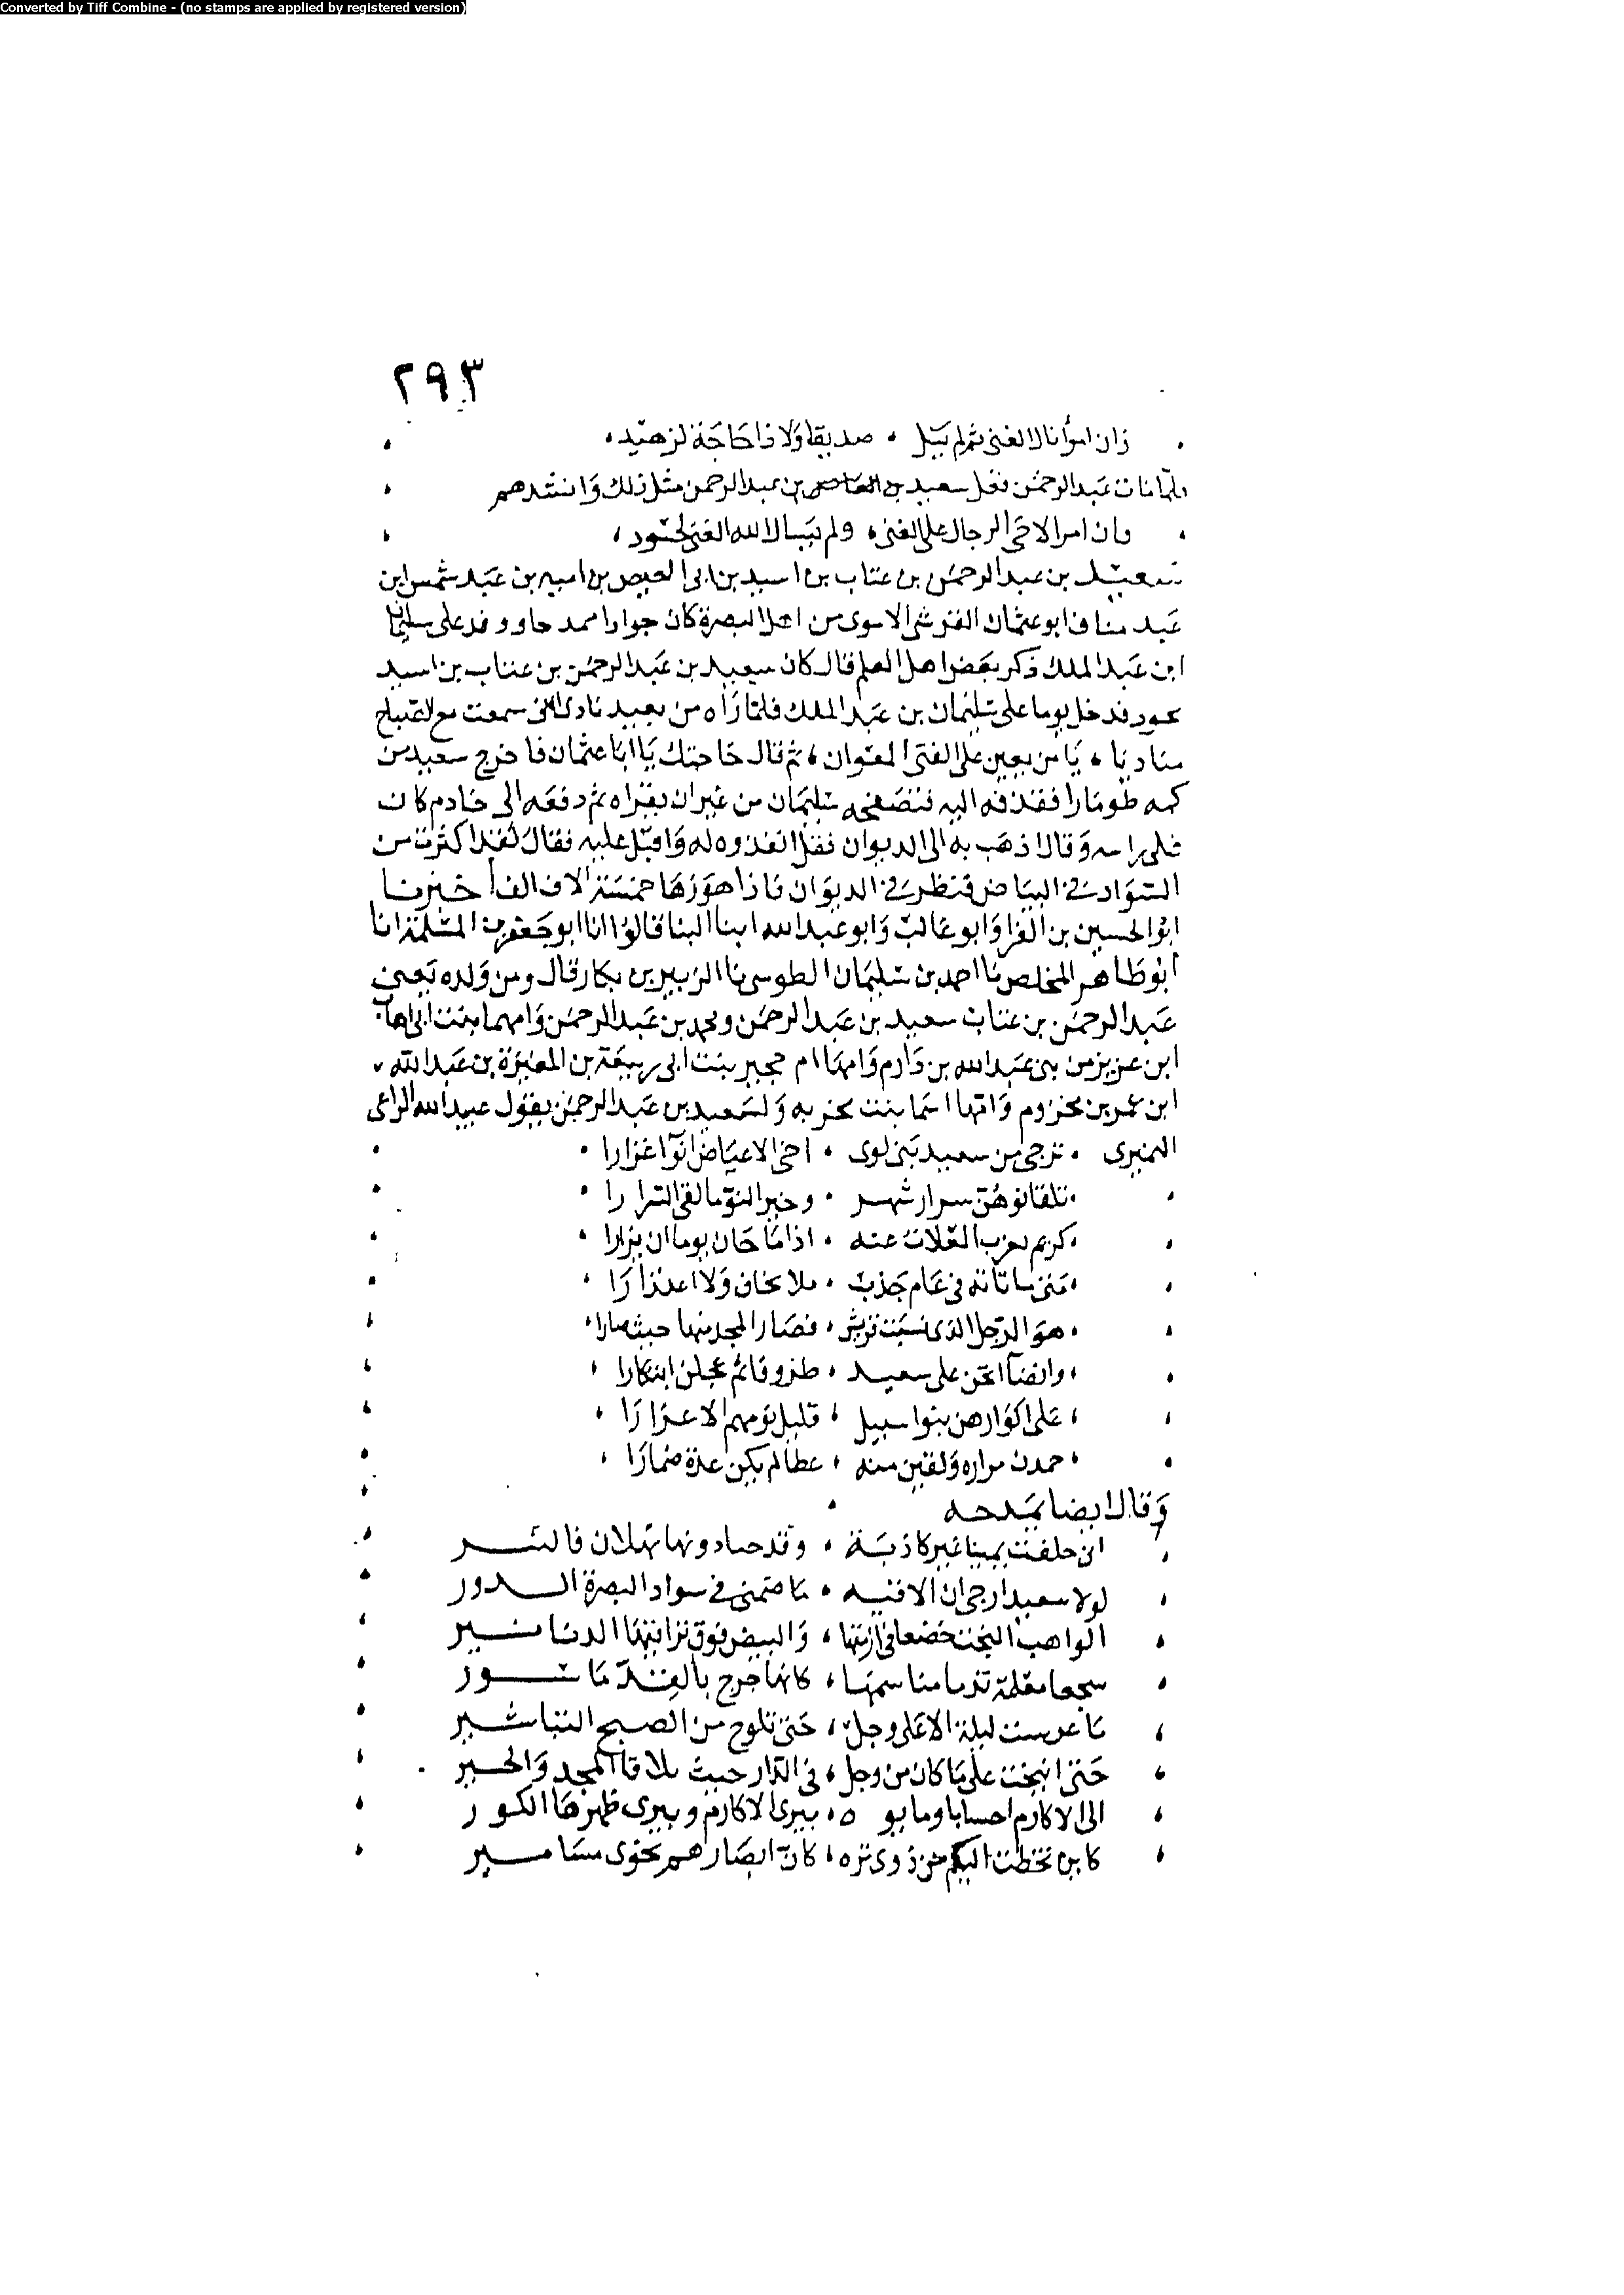 Converted by Tiff Combine - (no stamps are applied by registered version)
٢٩٣
وان امرأ نال الغنى ثم لم ينل ، صديقا ولا ذا حاجة لزهيد ،
فلما مات عبد الرحمن فعل سعيد بن العاص بن عبد الرحمن مثل ذلك وانشدهم
وان امرا لاحى الرجال على الغنى ، ولم يسال الله الغنى لحسود ،
سعيد بن عبد الرحمن بن عتاب بن اسيد بن ابى العيص بن اميه بن عبد شمس ابن
عبد مناف ابو عثمان القرشى الاموى من اهل البصرة كان جوادا ممدحا ووفد على سليمان
ابن عبد الملك ذكر بعض اهل العلم قال كان سعيد بن عبد الرحمن بن عتاب بن اسيد
فدخل يوما على سليمان بن عبد الملك فلما رآه من بعيد نادى انى سمعت مع الصباح
مناديا ، يا من يعين على الفتى المعوان ، ثم قال حاجتك يا ابا عثمان فاخرج سعيد من
كمه طومارا فقذفه اليه فتصفحه سليمان من غير ان يقراه ثم دفعه الى خادم كان
على راسه وقال اذهب به الى الديوان فقل انفذوه له واقبل عليه فقال لقد اكثرت من
السواد فى البياض فنظر فى الديوان فاذا هو زها خمسة الاف الف اخبرنا
ابو الحسين بن الفرا وابو غالب وابو عبد الله ابنا البنا قالوا انا ابو جعفر بن المسلمة انا
ابو طاهر المخلص نا احمد بن سليمان الطوسى نا الزبير بن بكار قال ومن ولده يعنى
عبد الرحمن بن عتاب سعيد بن عبد الرحمن ومحمد بن عبد الرحمن وامهما بنت ابى اهاب
ابن عزيز من بنى عبد الله بن دارم وامها ام حجير بنت ابى ربيعة بن المغيرة بن عبد الله
ابن عمر بن مخزوم وامها اسما بنت مخربه ولسعيد بن عبد الرحمن يقول عبيد الله الراعى
النميرى ، ترجى من سعيد بنى لوى ، اخى الاعياص انوآ غزارا ،
تلقا نوهن سرار شهر ، وخير النو ما لقى السرارا ،
كريم تعزب العلات عنه ، اذا ما حان يوما ان يزارا ،
متى ما تاته فى عام جدب ، فلا بخلا تخاف ولا اعتذارا ،
هو الرجل الذى نسبت قريش ، فصار المجد منها حيث صارا ،
وانضآ انخن على سعيد ، طروقا ثم عجلن ابتكارا ،
على اكوارهن بنوا سبيل ، قليل نومهم الا غرارا ،
حمدن مزاره ولقين منه ، عطا لم يكن عدة ضمارا ،
وقال ايضا يمدحه
انى حلفت يمينا غير كاذبة ، وقد حبا دونها ثهلان فالنير
لولا سعيد ارجى ان الاقيه ، ما ضمنى فى سواد البصرة الدور
الواهب البخت خضعا فى ازمتها ، والبيض فوق تراقيها الدنانير
ما عرست ليلة الا على وجل ، حتى تلوح من الصبح التباشير
حتى انيخت على ما كان من وجل ، فى الدار حيث تلاقا المجد والخير
الى الاكارم احسابا وما ، يبرى الاكارم ويبرى ظهرها الكور
كاين تخطت اليكم من ذوى تره ، كان ابصارهم نحوى مسامير